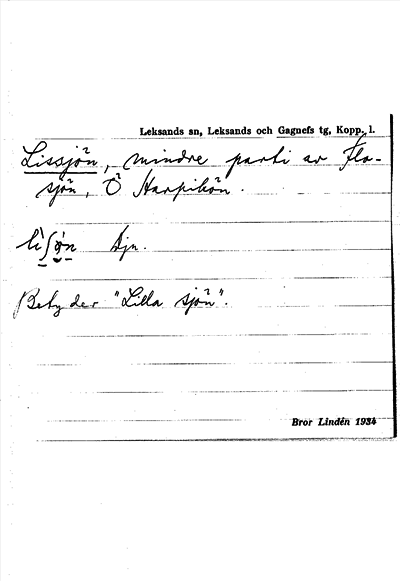 Leksands sn, Leksands och Gagnefs tg, Kopp. l.
Lissjön, mindre parti av Flo-
sjön, Ö Harpikön.
Djn.
Betyder "Lilla sjön".
Bror Lindén 1934